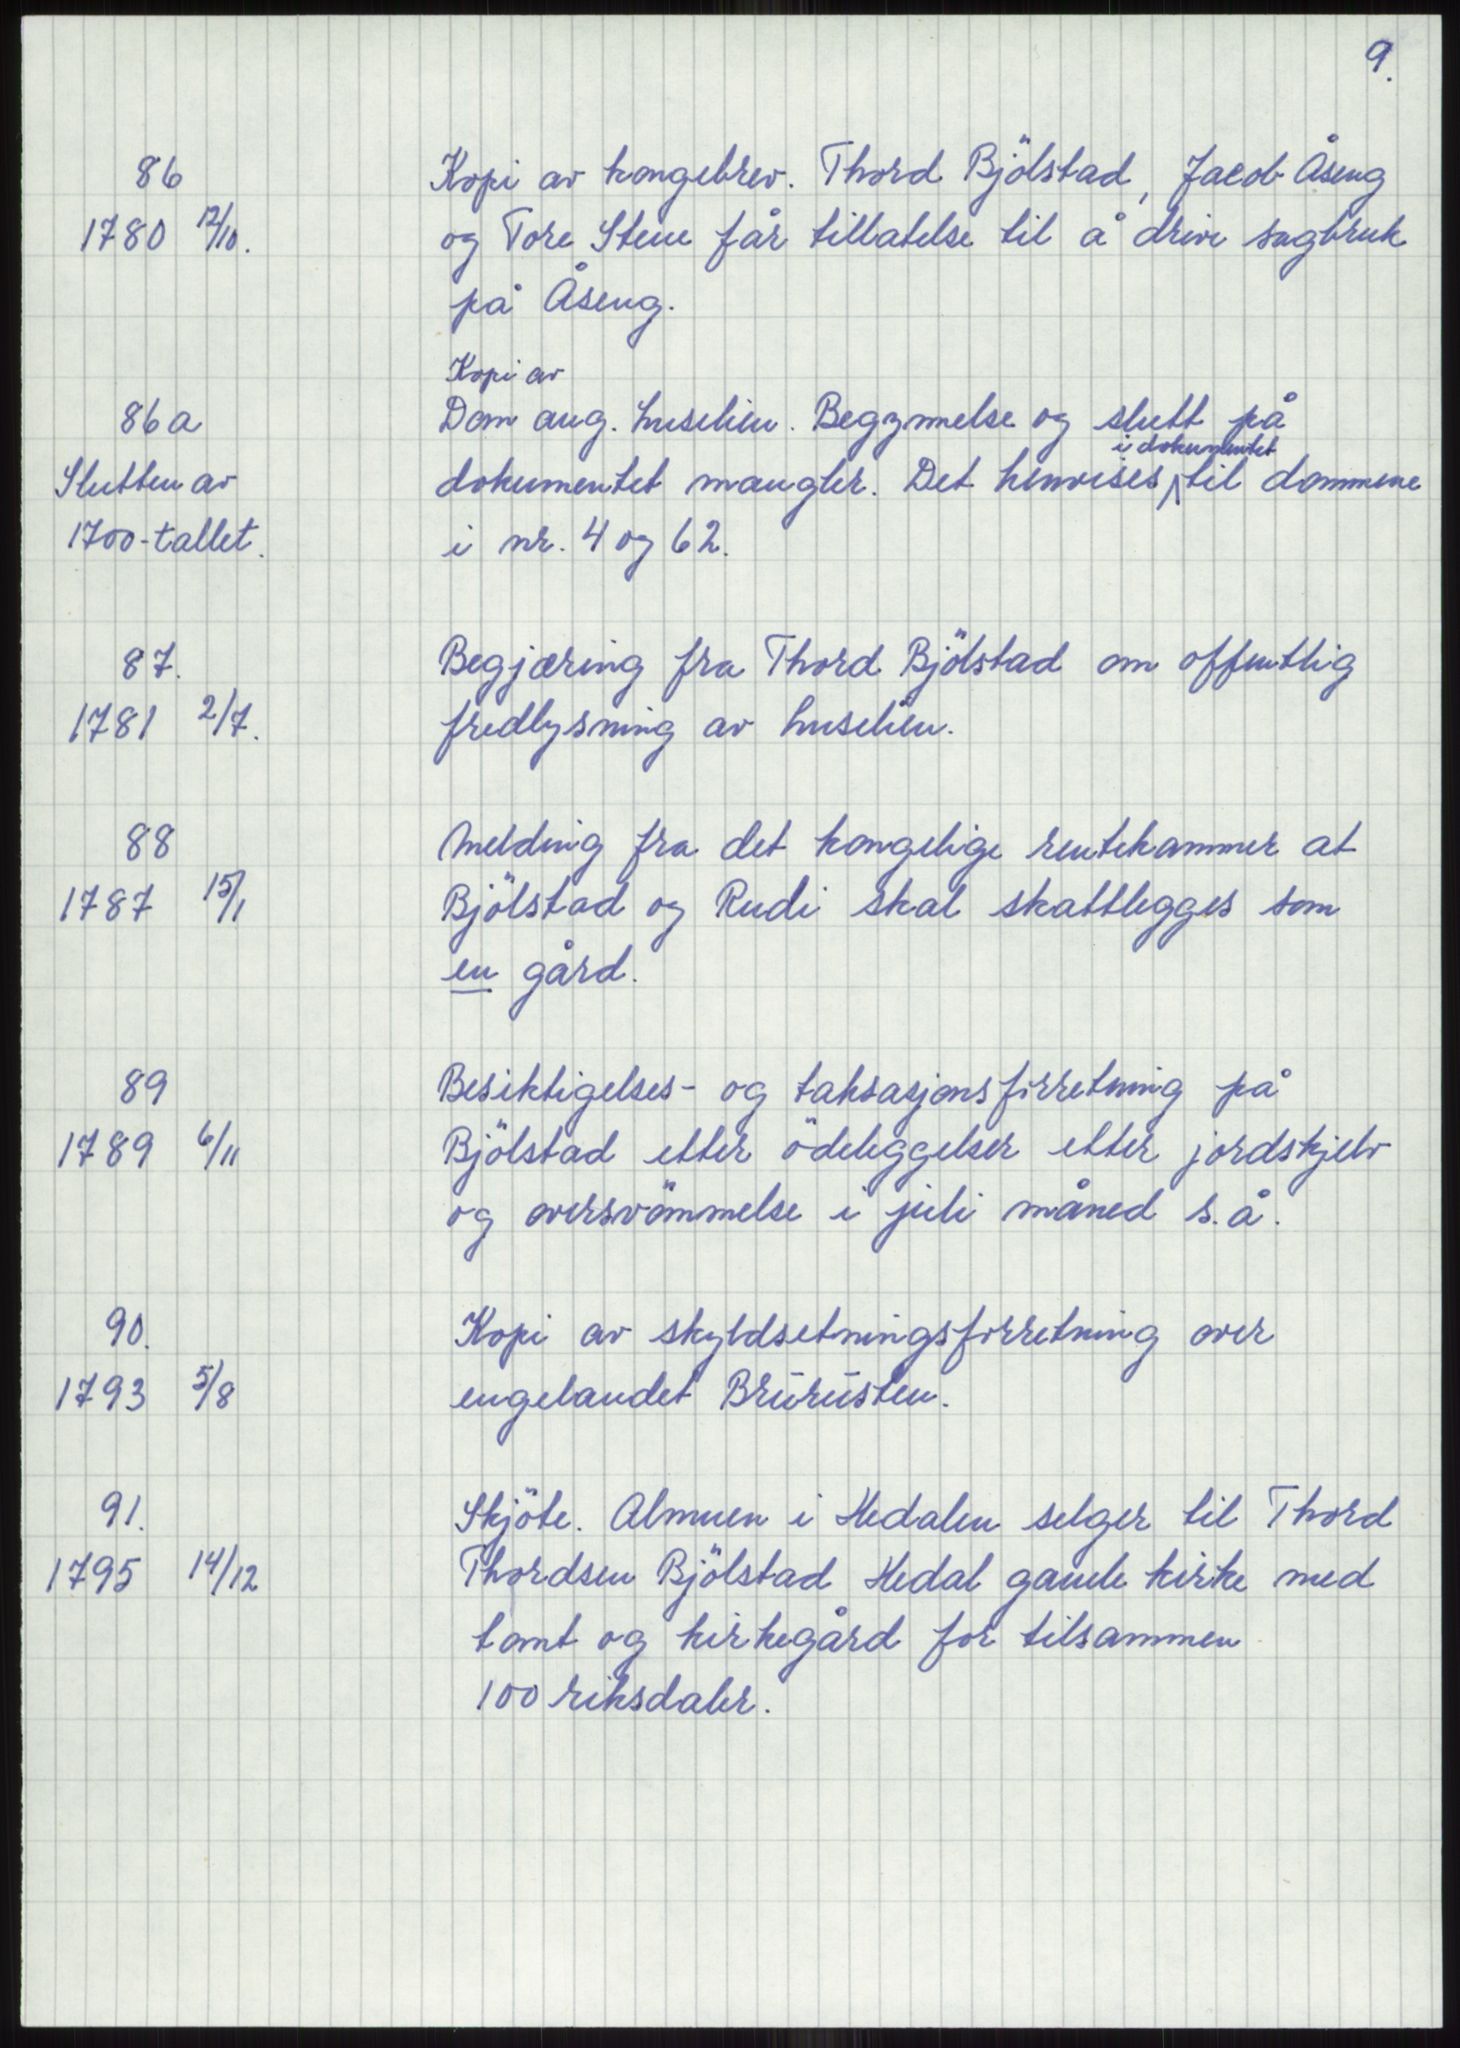 9.
86 Kopi av kongebrev. Thord Bjölstad, Jacob Åseng
1780 12/10. og Tore Stene får tillatelse til å drive sagbruk
på Åseng.
Kopi av
86a Dom ang. huselien. Begynnelse og slutt på
i dokumentet
Slutten av dokumentet mangler. Det henvises til dommene
1700-tallet. i nr. 4 og 62.
87. Begjæring fra Thord Bjölstad om offentlig
1781 2/7. fredlysning av huselien.
88 Melding fra det kongelige rentekammer at
1787 15/1 Bjölstad og Rudi skal skattlegges som
en gård.
89 Besiktigelses- og taksasjonsforretning på
1789 6/11 Bjölstad etter ödeleggelser etter jordskjelv
og oversvömmelse i juli måned s.å.
90. Kopi av skyldsetningsforretning over
1793 5/8 engelandet Brurusten.
91. Skjöte. Almuen i Hedalen selger til Thord
1795 14/12 Thordsen Bjölstad Hedal gamle kirke med
tomt og kirkegård for tilsammen
100 riksdaler.